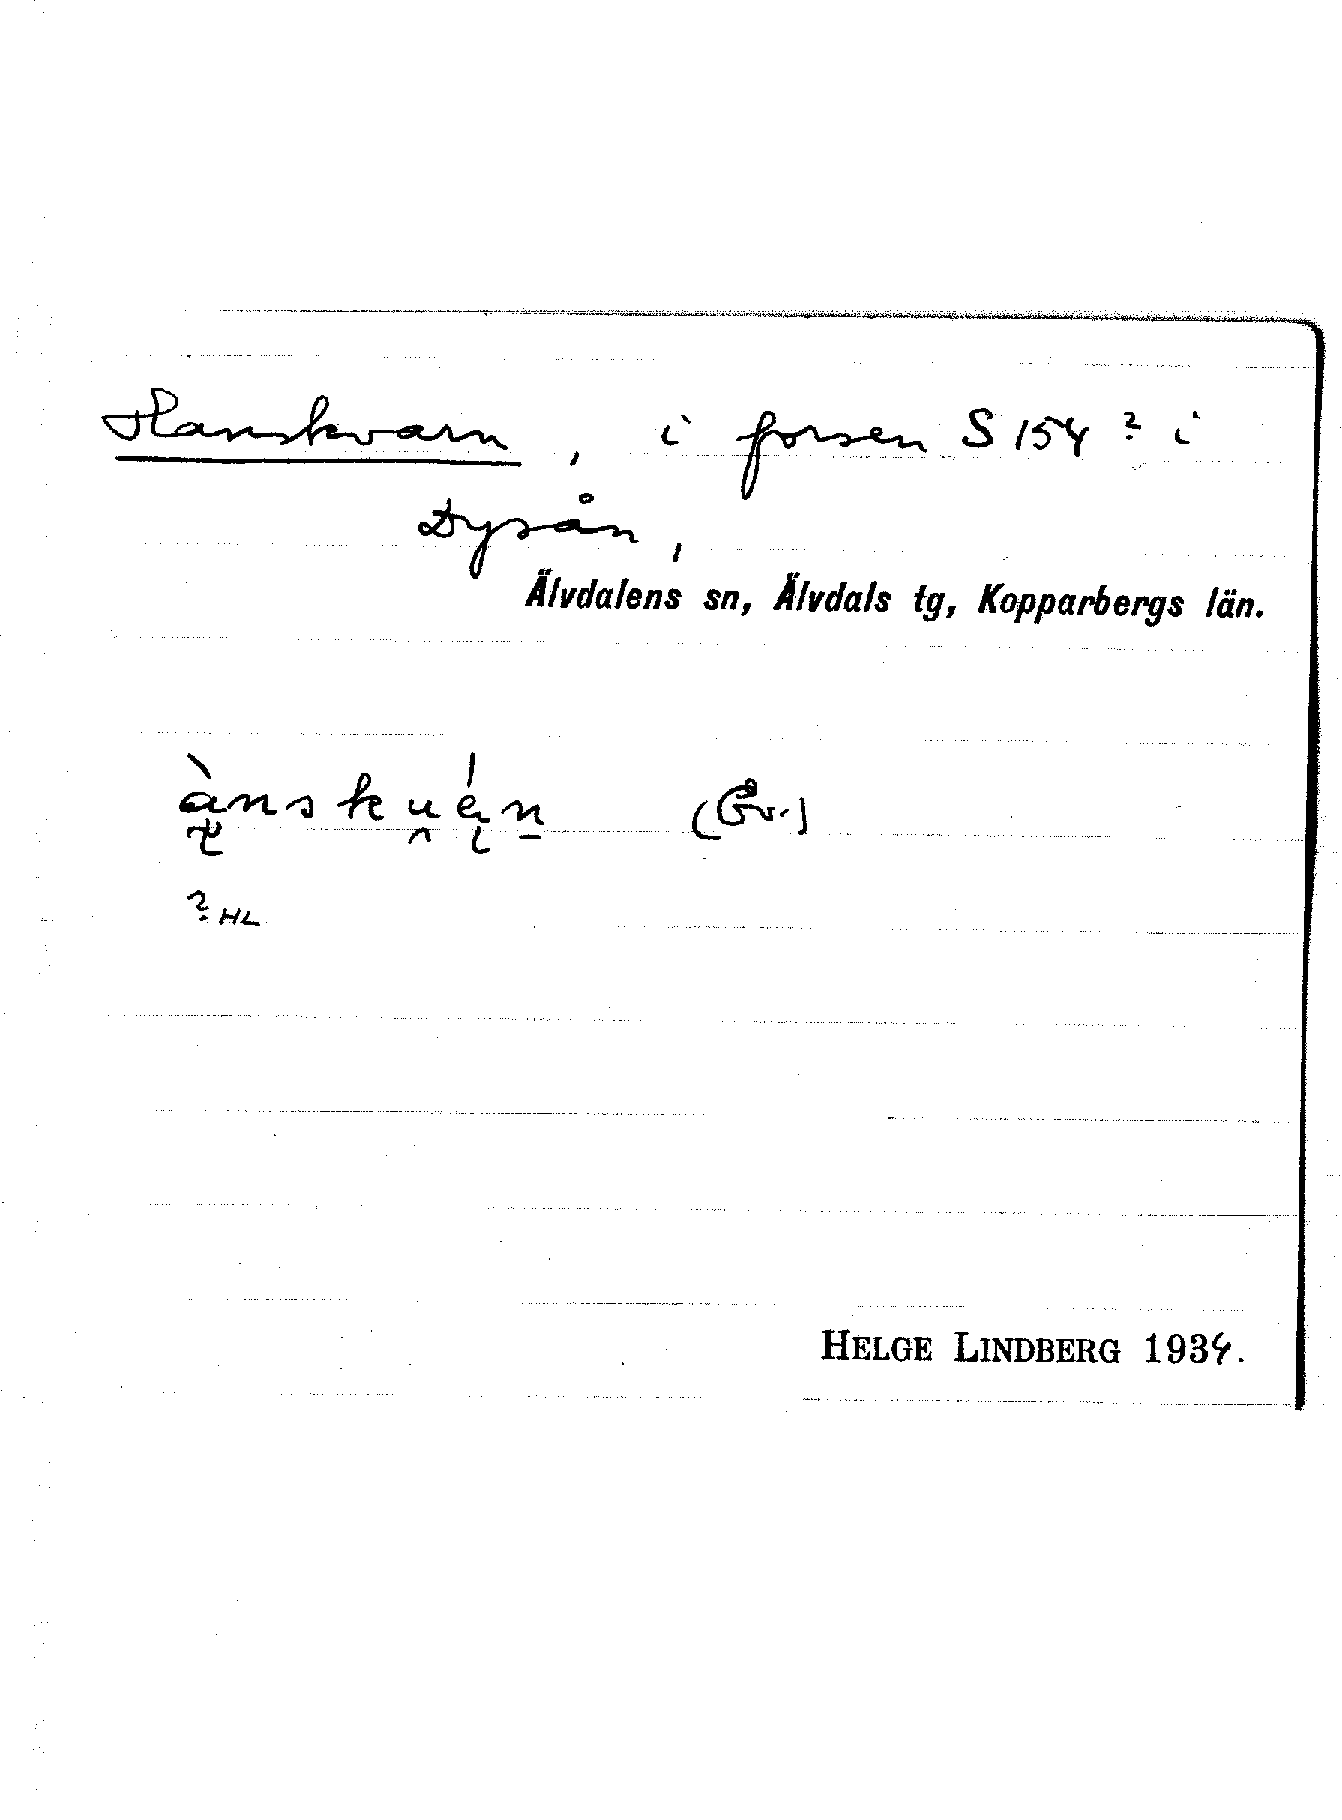 Hanskvarn, i forsen S 154? i
Dysån,
Älvdalens sn, Älvdals tg, Kopparbergs län.
? HL
HELGE LINDBERG 1934.